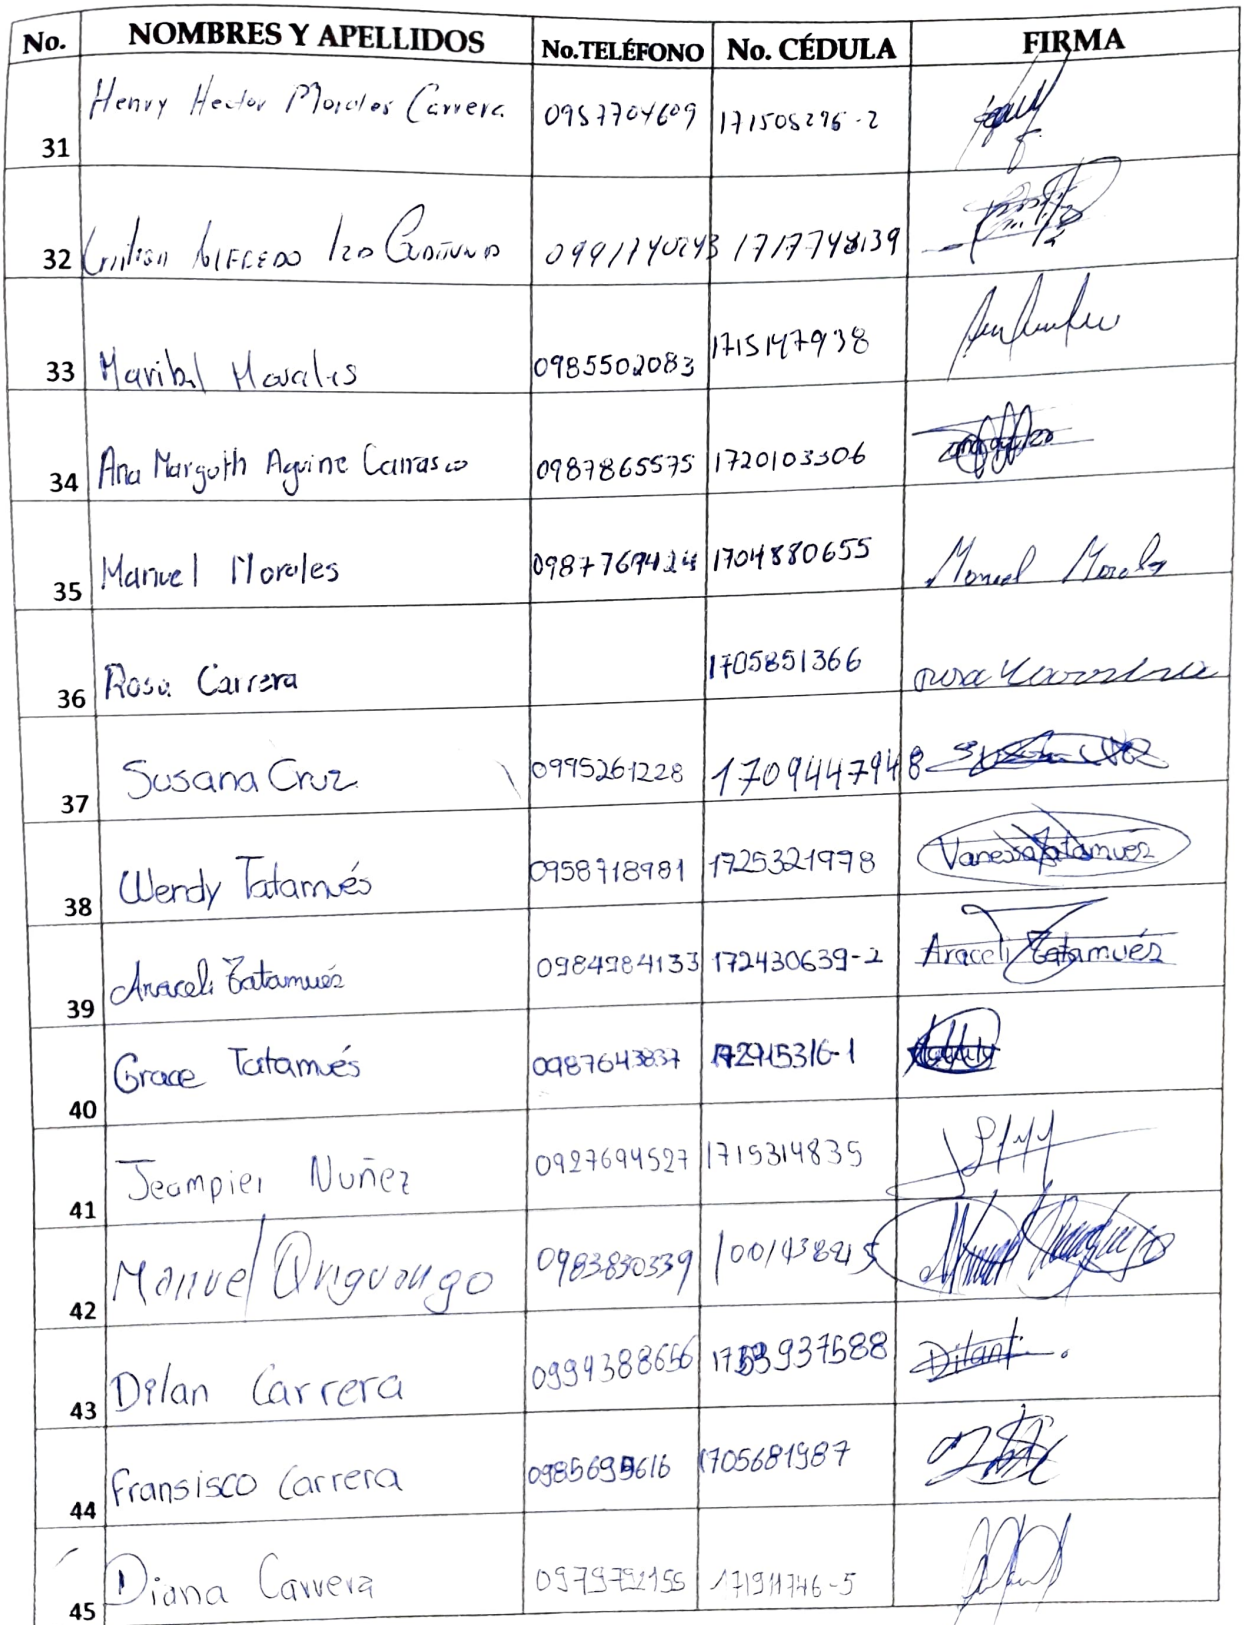 No. NOMBRES Y APELLIDOS No.TELÉFONO No. CÉDULA FIRMA
31 Henry Hector Morales Carrera 0957704609 171505295-2
32 0991740243 1717748139
33 Maribel Morales 0985502083 1715147938
34 Ana Margoth Aguirre Carrasco 0987865575 1720103306
35 Manuel Morales 0987769424 1704880655 Manuel Morales
36 Rosa Carrera 1705851366
37 Susana Cruz 0995261228 1709447948
38 Wendy Tatamués 0958718981 1725321998 Vanessa Tatamués
39 Araceli Tatamués 0984984133 172430639-2 Araceli Tatamués
40 Grace Tatamués 0987643837 172915316-1
41 Jeampier Nuñez 0927694527 1715314835
42 Manuel Quguango 0983830339
43 Dilan Carrera 0994388656 Dilan
44 Fransisco Carrera 1705681987
45 Diana Carrera 0979792155 171911746-5